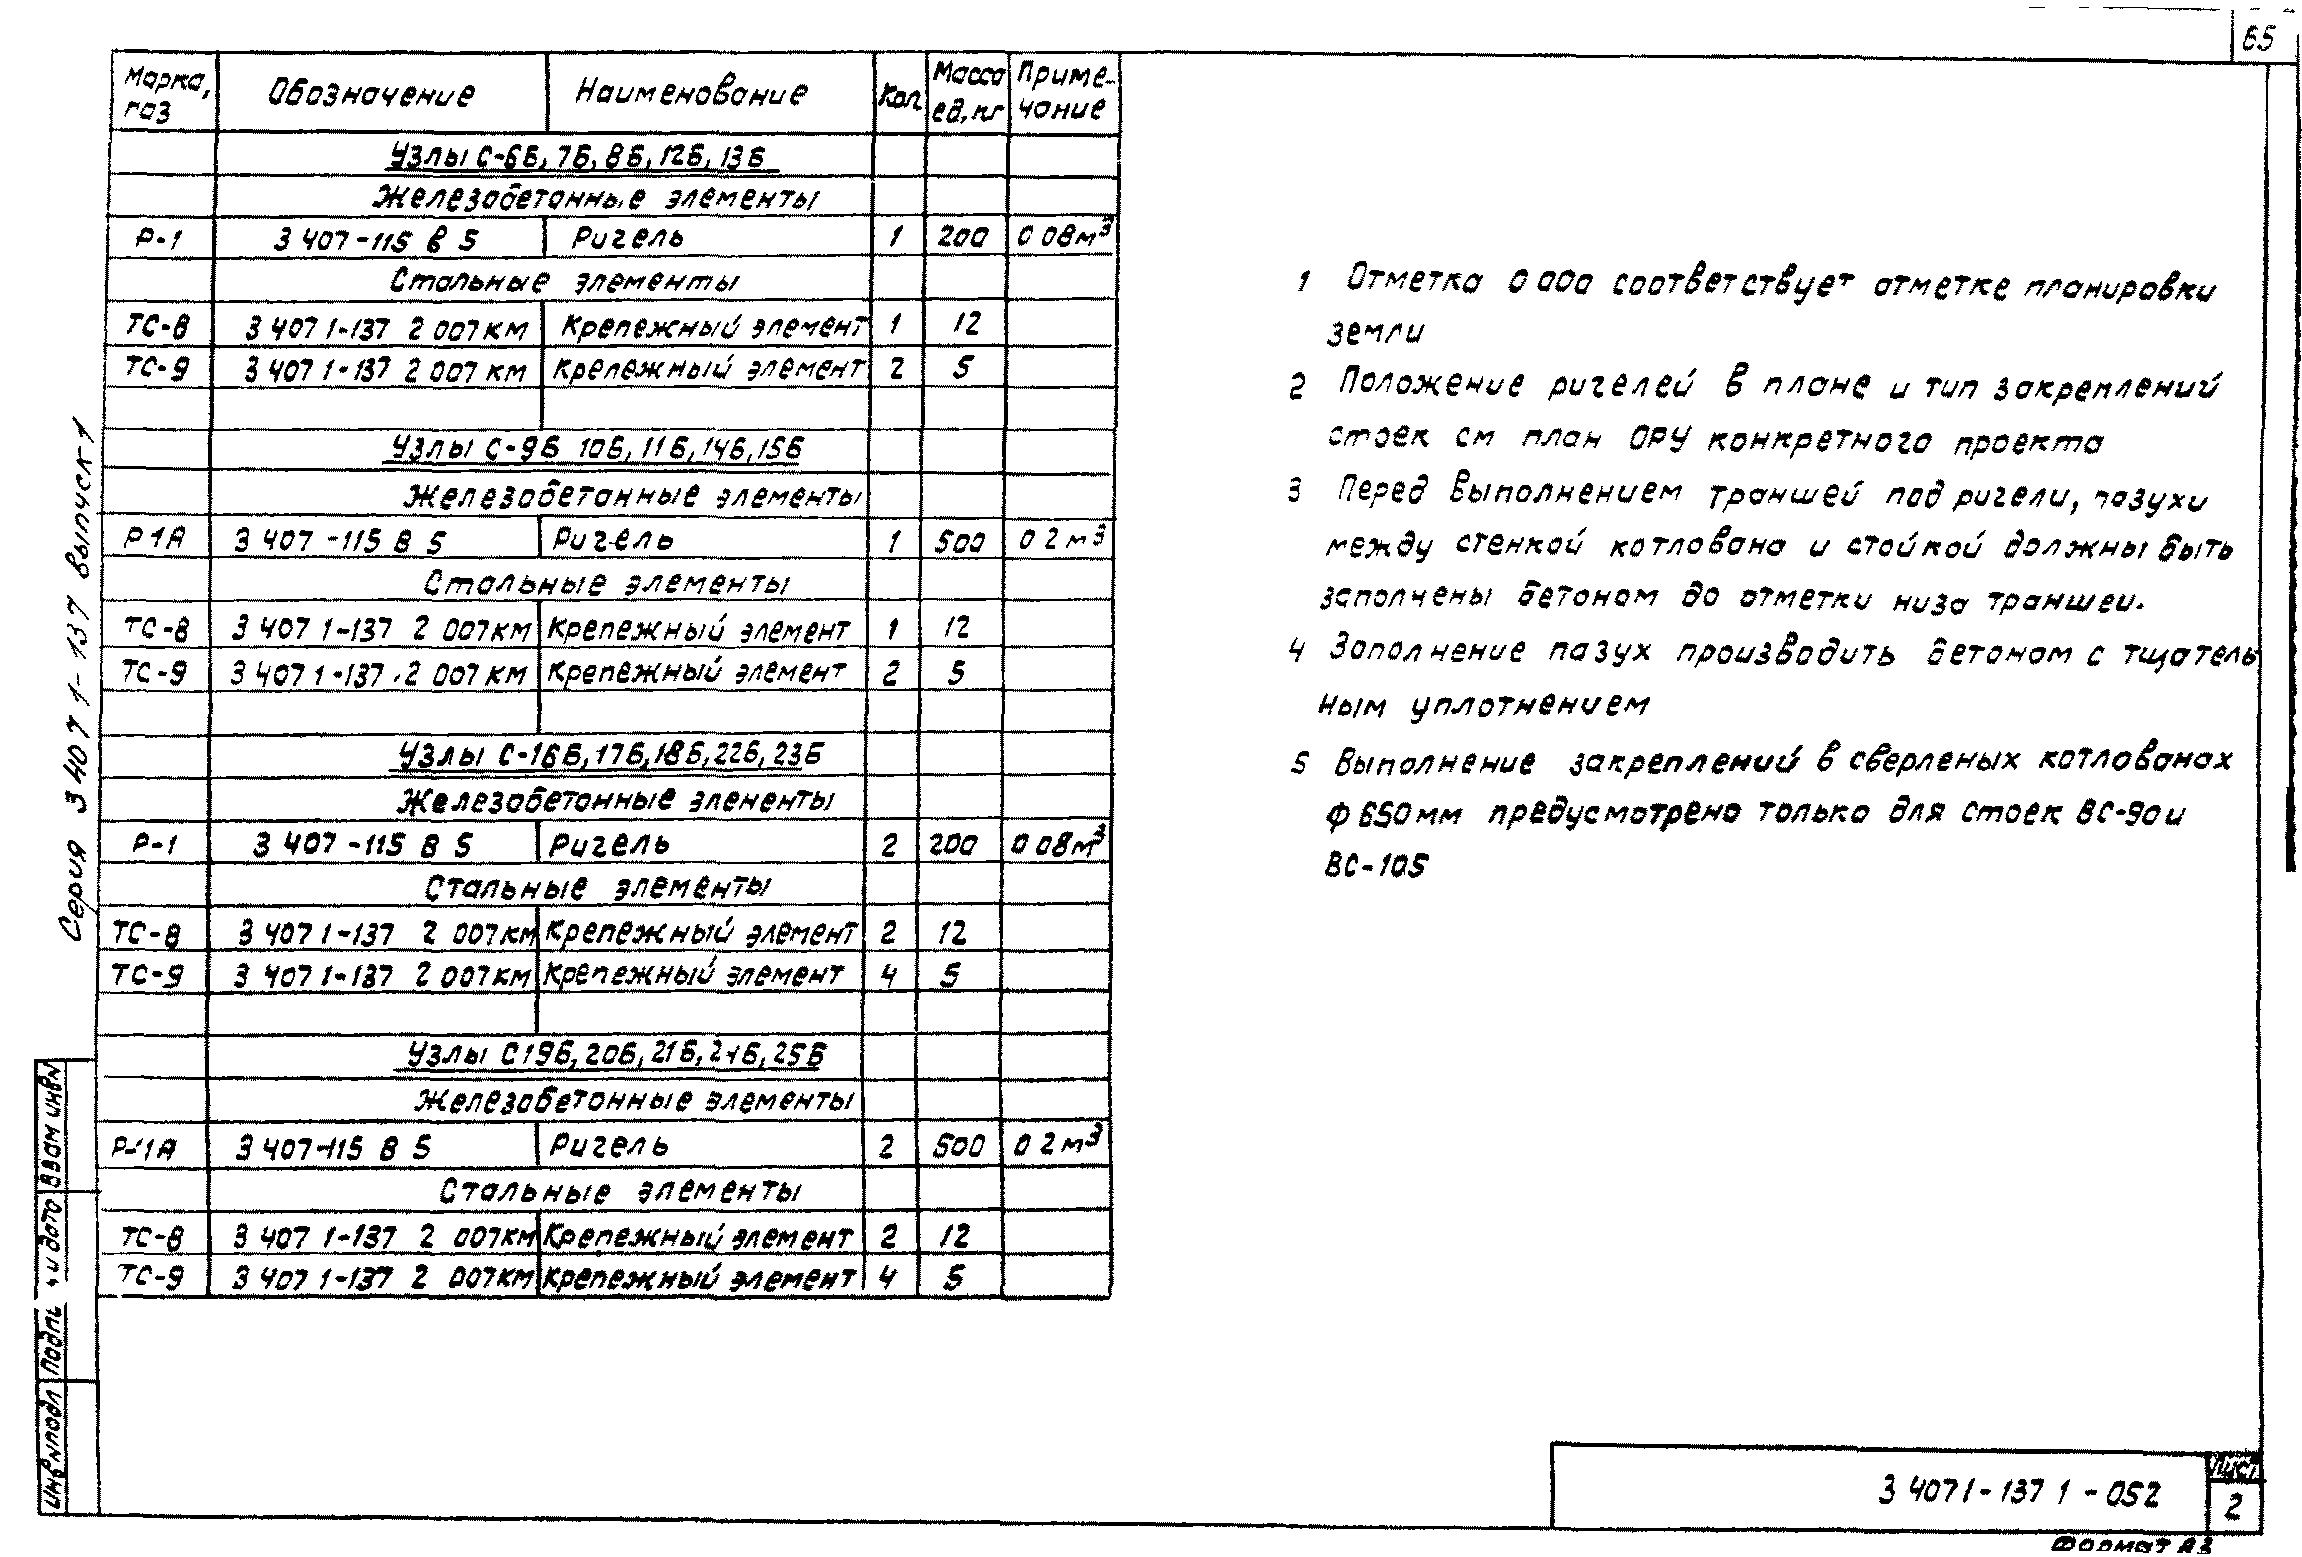 65
Марка, Обозначение Наименование Кол. Масса Приме-
газ ед, кг чание
Узлы С-6Б, 7Б, 8Б, 12Б, 13Б
Железобетонные элементы
Р-1 3 407-115 в 5 Ригель 1 200 0 08м³
Стальные элементы
ТС-8 3 407 1-137 2 007км Крепежный элемент 1 12
ТС-9 3 407 1-137 2 007км Крепежный элемент 2 5
Узлы С-9Б 10Б, 11Б, 14Б, 15Б
Железобетонные элементы
Р 1А 3 407-115 В 5 Ригель 1 500 0 2м³
Стальные элементы
ТС-8 3 407 1-137 2 007км Крепежный элемент 1 12
ТС-9 3 407 1-137.2 007км Крепежный элемент 2 5
Узлы С-16Б, 17Б, 18Б, 22Б, 23Б
Железобетонные элененты
Р-1 3 407-115 В 5 Ригель 2 200 0 08м³
Стальные элементы
ТС-8 3 407 1-137 2 007км Крепежный элемент 2 12
ТС-9 3 407 1-137 2 007км Крепежный элемент 4 5
Узлы С19Б, 20Б, 21Б, 24Б, 25Б
Железобетонные элементы
Р-1А 3 407-115 В 5 Ригель 2 500 0 2м³
Стальные элементы
ТС-8 3 407 1-137 2 007км Крепежный элемент 2 12
ТС-9 3 407 1-137 2 007км Крепежный элемент 4 5
1 Отметка 0 000 соответствует отметке планировки
земли
2 Положение ригелей в плане и тип закреплений
стоек см план ОРУ конкретного проекта
3 Перед выполнением траншей под ригели, пазухи
между стенкой котлована и стойкой должны быть
заполнены бетоном до отметки низа траншеи.
4 Заполнение пазух производить бетоном с тщатель
ным уплотнением
5 Выполнение закреплений в сверленых котлованах
ф 650мм предусмотрено только для стоек ВС-90 и
ВС-105
Серия 3 407 1-137 выпуск 1
Инв№подл Подпь и дата Взам инв№
3 407 1-137 1-052
Лист
2
Формат А3